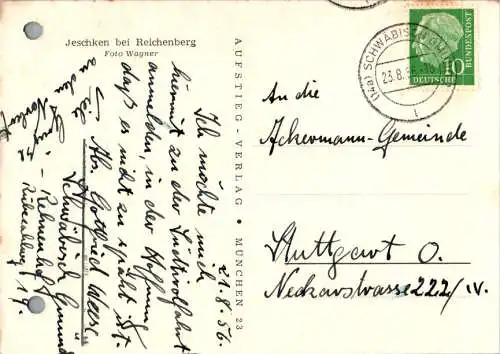 Jeschken bei Reichenberg
Foto Wagner
AUFSTIEG-VERLAG • MÜNCHEN 23
21.8.56.
Ich möchte mich
hiermit zu der Südtirolfahrt
anmelden, in der Hoffnung
daß es nicht zu spät ist.
Abs. Gottfried
Schwäbisch Gmünd
(14a) SCHWÄBISCH GMÜND
23.8.56
DEUTSCHE BUNDESPOST
10
An die
Ackermann-Gemeinde
Stuttgart O.
Neckarstrasse 222/IV.